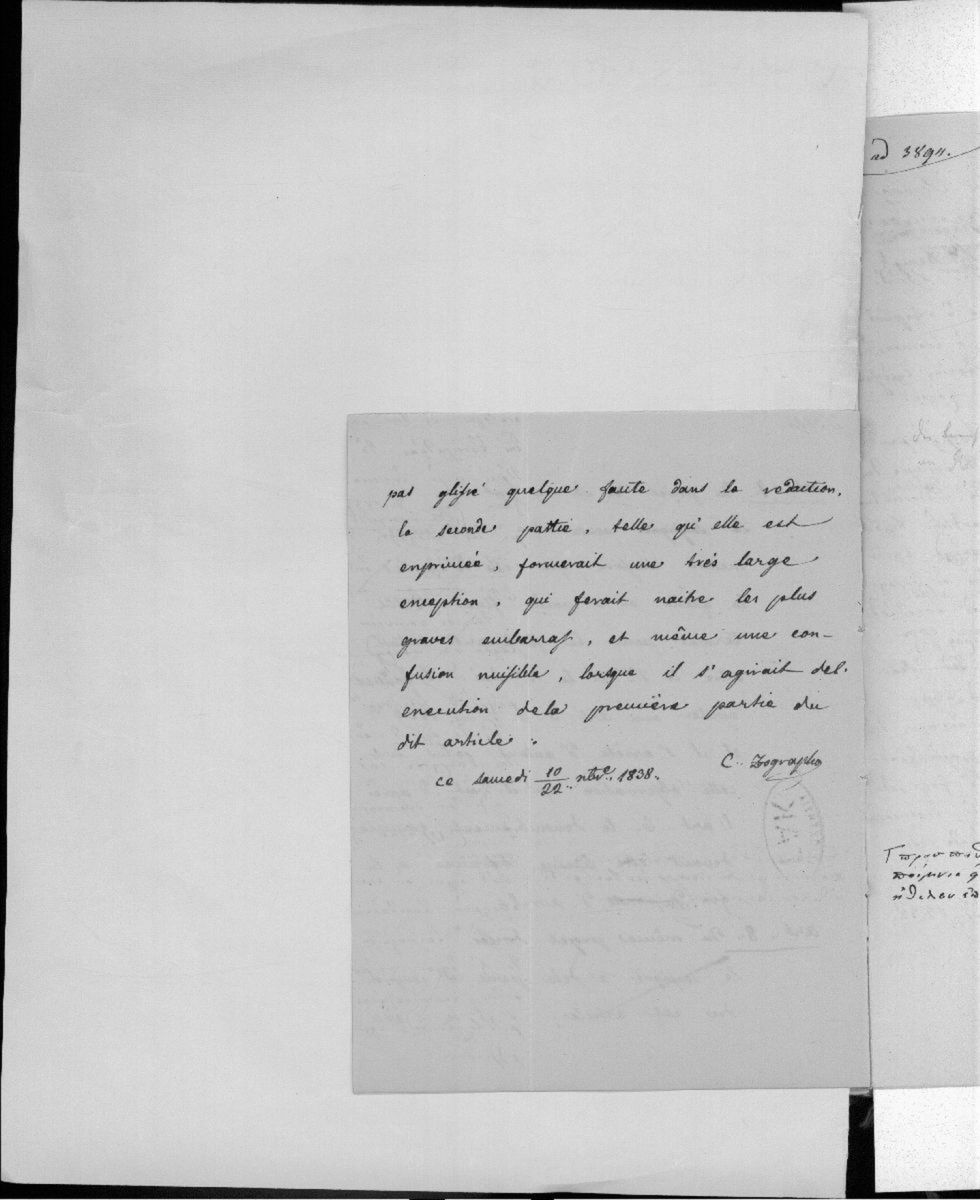 pas glissé quelque faute dans la redaction,
la seconde partie, telle qu'elle est
exprimée, formerait une trés large
exception, qui ferait naitre les plus
graves embarras, et même une con-
fusion nuisible, lorsque il s'agirait del'
execution dela première partie du
dit article.
C. Zographo
ce samedi 10/22 nbre. 1838.
ad 3894.